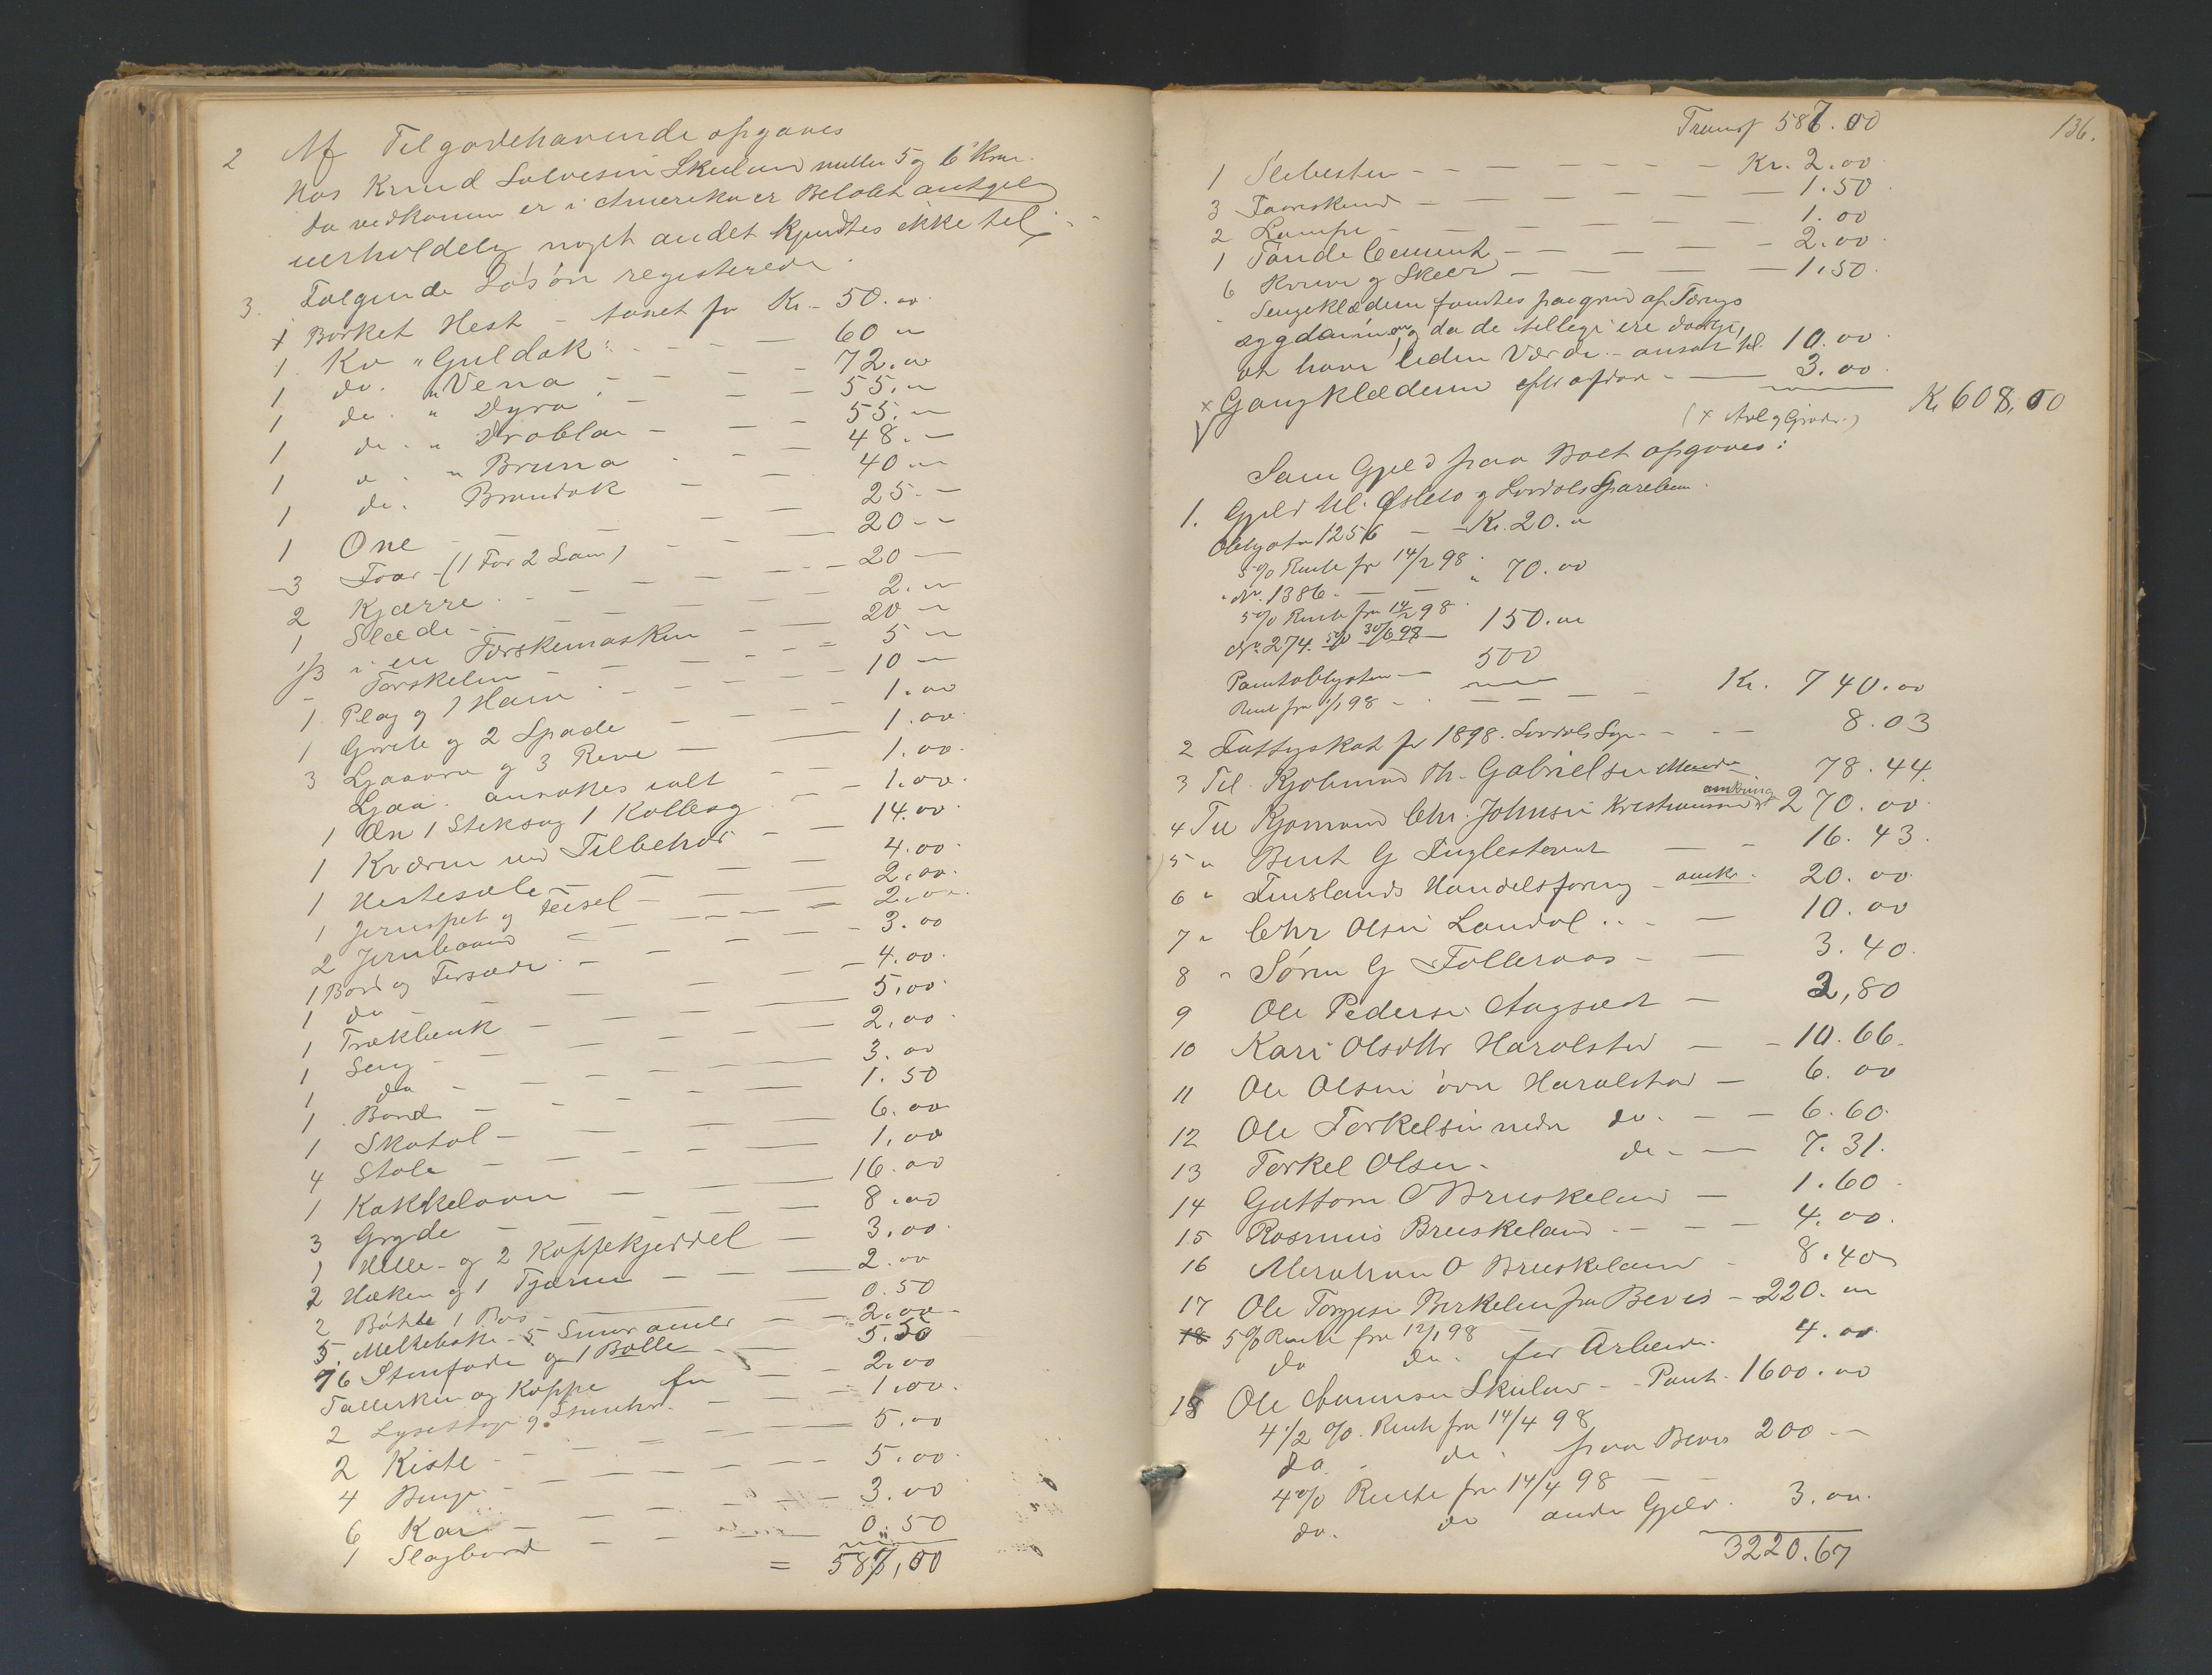 2 Af Tilgodehavende opgaves
hos Knud Salvesen Skuland mellem 5 og 6 Kroner.
da vedkommen er i Amerika er Beløbet antagelig
uerholdelig noget andet kjendtes ikke til.
3. Følgende Løsøre registerede.
1 Borket Hest - taxet for Kr - 50.00
1. Ko "Guldok" - - - 60 "
1 do. "Vena - - - 72.00
1 do. " Dyra - - 55. "
1 do. " Droblan - - 55. "
1 do. " Bruna - - 48. -
1 do. Brandok - - 40 "
1 One - - - 25. -
3 Faar (1 Før 2 Lam) - - 20 - -
2 Kjærre - - - 20 -
1 Slæde - - - 2. "
1/3 i en Tærskemaskin - 20 "
- Tørskelin - - - 5 "
1 Plog og 1 Harv - - - 10 -
1 Grete og 2 Spade - - - 1.00
3 Ljaaorv og 3 Rive - - 1.00
Ljaa. ansattes ialt - - 1.00
1 Øn 1 Stiksag 1 Kollesag - - 1.00
1 Kværn med Tilbehør - - 14.00
1 Hestesæle - - - 4.00
1 Jernspet og Feisel - - 2.00
2 Jernbaand - - - 2.00
1 Bord og Forsæde - - 3.00
1 do - - - 4.00
1 Trækbenk - - - 5.00
1 Seng - - - 2.00
1 do - - - 3.00
1 Bord - - - 1.50
1 Skatol - - - 6.00
4 Stole - - - 1.00
1 Kakkelovn - - - 16.00
3 Gryde - - - 8.00
1 Helle- og 2 Kaffekjeddel - 3.00
2 Høken og 1 Tjærne - - 2.00
2 Bøtte 1 Bos - - 0.50
5. Melkebøtte - 5 Smør - - 2.00
96 Stenfade og 1 Bolle - 5.50
Tallerken og Koppe for - 2.00
2 Lysestage og - - 1.00
2 Kiste - - - 5.00
4 Binge - - - 5.00
6 Kar - - - 3.00
1 Slagbord - - - 0.50
= 587,00
136.
Transp 587.00
1 Slibesten - - - Kr. 2.00
3 Faareskind - - - 1.50
2 Lampe - - - 1.00
1 Tønde Cement - - - 2.00
6 Knive og Skeer - - - 1.50
Sengeklæderne fandtes paagrund af Tærings
sygdommen, og da de tillige ere daarlige,
at have liden Værdi - ansat til 10.00
x Gangklæderne efter afdøde - 3.00
Kr 608,00
Som Gjæld paa Boet opgaves:
1. Gjæld til Øslebø og Lovdals Sparebank.
Obligation 1256 - Kr. 20. "
5 % Rente fra 14/2 98
" No. 1386 - - " 70.00
5 % Rente fra 14/2 98
No. 274. 5% 30/6 98 - 150.00
Pantobligation - 500
Rente fra 1/1 98 - - - - Kr. 740.00
2 Fattigskat for 1898. Lovdals Sogn - - - 8.03
3 Til Kjøbmand Th. Gabrielsen Mandal 78.44
4 Til Kjømand Chr. Johnsen Kristiansand omkring 270.00
5 " Bent G Fuglestvedt - - 16.43
6 " Finslands Handelsforening - omkr. 20.00
7 " Chr Olsen Landal - - 10.00
8 " Søren G Folleraas - - 3.40
9 Ole Pedersen - 2,80
10 Kari Olsdttr Haralstad - - 10.66
11 Ole Olsen øvre Haralstad - 6.00
12 Ole Torkelsen nedre do. - - 6.60
13 Torkel Olsen. do - - 7.31.
14 Guttorm O Bruskeland - 1.60
15 Rasmus Bruskeland - - - 4.00.
16 Abraham O Bruskeland - 8.40
17 Ole Torjusen Birkeland fra Bevis - 220. "
18 5 % Rente fra 12/1 98
do do. for Arbeide. 4.00
18 Ole Aanensen Skuland - Pant. 1600.00
4 1/2 %. Rente fra 14/4 98
do. do. paa Bevis 200 -
4 % Rente fra 14/4 98 - -
do. do anden Gjæld. 3.00
3220.67